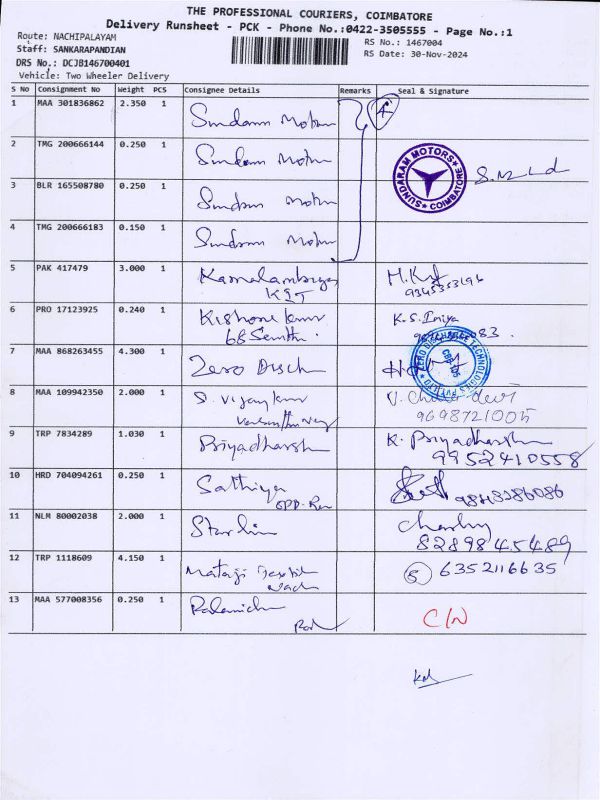 THE PROFESSIONAL COURIERS, COIMBATORE
Delivery Runsheet - PCK - Phone No.:0422-3505555 - Page No.:1
Route: NACHIPALAYAM
RS No.: 1467004
Staff: SANKARAPANDIAN
RS Date: 30-Nov-2024
DRS No.: DCJB146700401
Vehicle: Two Wheeler Delivery
S No Consignment No Weight PCS Consignee Details Remarks Seal & Signature
1 MAA 301836862 2.350 1 Sundaram Motors
2 TMG 200666144 0.250 1 Sundaram Motors
SUNDARAM MOTORS COIMBATORE
3 BLR 165508780 0.250 1 Sundaram Motors
4 TMG 200666183 0.150 1 Sundaram Motors
5 PAK 417479 3.000 1
6 PRO 17123925 0.240 1 K.S. Priya
7 MAA 868263455 4.300 1 Zero Disch
8 MAA 109942350 2.000 1 S. Vijaykumar
9698721005
9 TRP 7834289 1.030 1 Priyadharsh K. Priyadharsh
9952410558
10 HRD 704094261 0.250 1 Sathiya 9843286086
11 NLM 80002038 2.000 1 Starlin
8289845489
12 TRP 1118609 4.150 1 Mataji Textil 5 6352116635
13 MAA 577008356 0.250 1 C/N